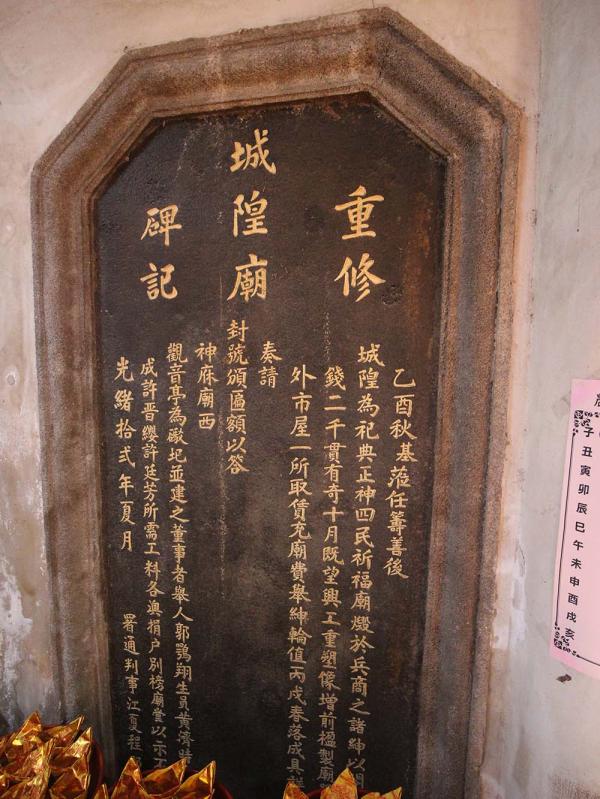 重修
城隍廟
碑記
乙酉秋基蒞任籌善後
城隍為祀典正神四民祈福廟燬於兵商之諸紳以
錢二千貫有奇十月既望興工重塑像增前楹製廟
外市屋一所取賃充廟費舉紳輪值丙戌春落成具詳
奏請
封號頒匾額以答
神庥廟西
觀音亭為敵圮並建之董事者舉人郭鶚翔生員黃濟時
成許晋纓許廷芳所需工料各澳捐户別榜廟堂以示不
光緒拾弍年夏月
署通判事江夏程
子丑寅卯辰巳午未申酉戌亥